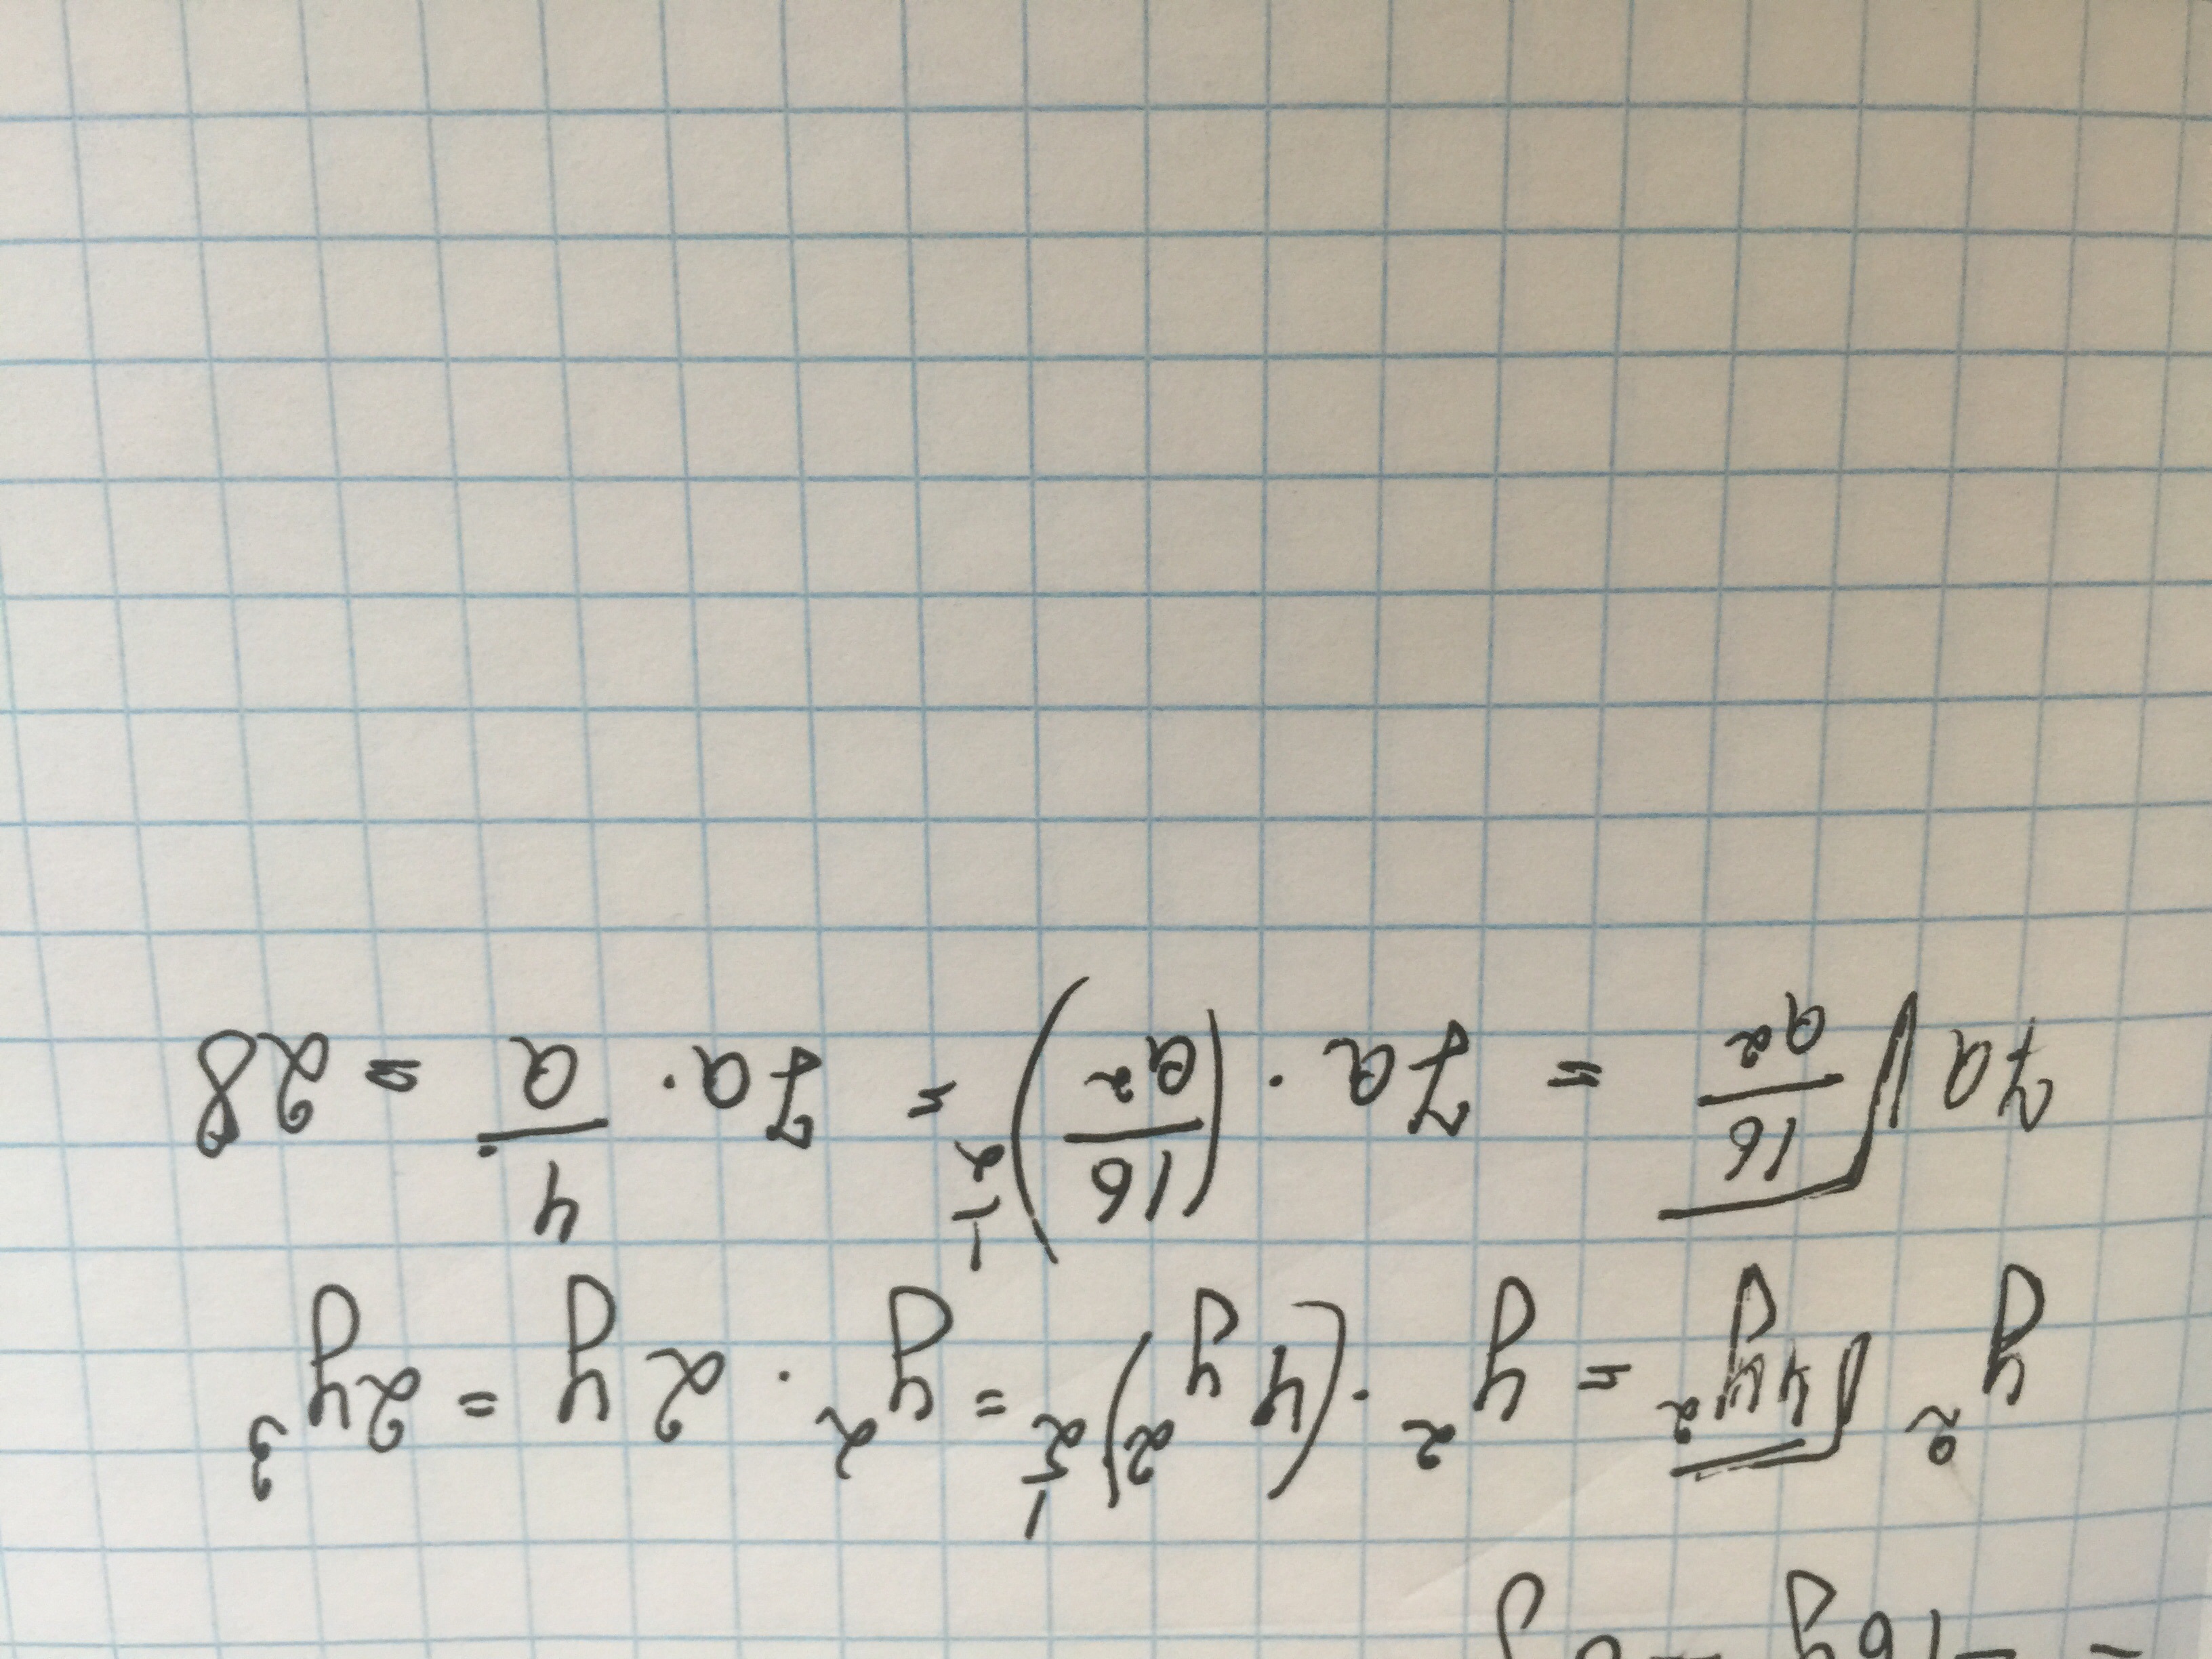 = -16y
y²√(4y²) = y² · (4y²)^½ = y² · 2y = 2y³
7a√(16/a²) = 7a · (16/a²)^½ = 7a · 4/a = 28